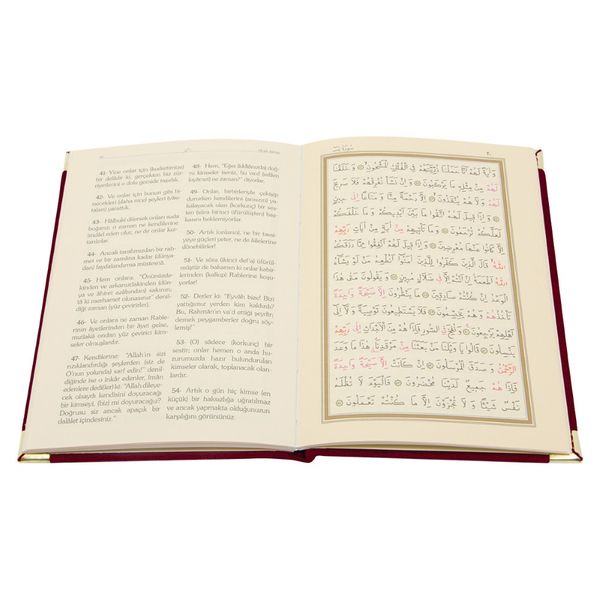 41- Yine onlar için (kudretimize)
bir delildir ki, gerçekten biz zür-
riyetlerini o dolu gemide taşıdık.
42- Ve onlar için bunun gibi bi-
necekleri (daha nice) şeyleri (vası-
taları) yarattık.
43- Hâlbuki dilersek onları suda
boğarız; o zaman ne kendilerine
imdâd eden olur, ne de onlar kur-
tarılırlar.
44- Ancak tarafımızdan bir rah-
met ve bir zamâna kadar (dünya-
dan) faydalandırma müstesnâ.
45- Hem onlara: "Önünüzde-
kinden ve arkanızdakinden (dün-
ya ve âhiret azâbından) sakının;
tâ ki merhamet olunasınız" denil-
diği zaman (yüz çevirirler).
46- Ve onlara ne zaman Rable-
rinin âyetlerinden bir âyet gelse,
mutlaka ondan yüz çevirici kim-
seler olmuşlardır.
47- Kendilerine: "Allah'ın sizi
rızıklandırdığı şeylerden (siz de
O'nun yolunda) sarf edin!" denil-
diğinde ise o inkâr edenler, îmân
edenlere dediler ki: "Allah dileye-
cek olsaydı kendisini doyuracağı
bir kimseyi, (biz mi) doyuracağız?
Doğrusu siz ancak apaçık bir
dalâlet içindesiniz."
48- Hem, "Eğer (iddiânızda) doğ-
ru kimseler iseniz, bu vaad (edilen
azâb) ne zaman?" diyorlar.
49- Onlar, birbirleriyle çekişip
dururlarken kendilerini (ansızın) ya-
kalayacak olan (korkunç) bir ses-
den (sûra birinci üfürülüşten) baş-
kasını beklemiyorlar.
50- Artık (onların), ne bir tavsi-
yeye güçleri yeter, ne de âilelerine
dönebilirler!
51- Ve sûra (ikinci def'a) üfürül-
müştür; bir de bakarsın ki onlar kabir-
lerinden (kalkıp) Rablerine koşu-
yorlar.
52- Derler ki: "Eyvâh bize! Bizi
yattığımız yerden kim kaldırdı?
Bu, Rahmân'ın va'd ettiği şeydir;
demek peygamberler doğru söyle-
miş!"
53- (O) sâdece (korkunç) bir
sestir; onlar hemen o anda hu-
zûrumuzda hazır bulundurulan
kimseler olarak, toplanacak olan-
lardır.
54- Artık o gün hiç kimse (en
küçük) bir haksızlığa uğratılmaz
ve ancak yapmakta olduğunuzun
karşılığını görürsünüz.
وَاٰيَةٌ لَهُمْ اَنَّا حَمَلْنَا ذُرِّيَّتَهُمْ فِي الْفُلْكِ الْمَشْحُونِ وَخَلَقْنَا
لَهُمْ مِنْ مِثْلِهِ مَا يَرْكَبُونَ وَاِنْ نَشَأْ نُغْرِقْهُمْ فَلَا صَرِيخَ
لَهُمْ وَلَا هُمْ يُنْقَذُونَ اِلَّا رَحْمَةً مِنَّا وَمَتَاعًا اِلٰى
حِينٍ وَاِذَا قِيلَ لَهُمُ اتَّقُوا مَا بَيْنَ اَيْدِيكُمْ وَمَا خَلْفَكُمْ
لَعَلَّكُمْ تُرْحَمُونَ وَمَا تَأْتِيهِمْ مِنْ اٰيَةٍ مِنْ اٰيَاتِ رَبِّهِمْ
اِلَّا كَانُوا عَنْهَا مُعْرِضِينَ وَاِذَا قِيلَ لَهُمْ اَنْفِقُوا مِمَّا رَزَقَكُمُ
اللّٰهُ قَالَ الَّذِينَ كَفَرُوا لِلَّذِينَ اٰمَنُوا اَنُطْعِمُ مَنْ لَوْ يَشَاءُ
اللّٰهُ اَطْعَمَهُ اِنْ اَنْتُمْ اِلَّا فِي ضَلَالٍ مُبِينٍ وَيَقُولُونَ مَتٰى هٰذَا
الْوَعْدُ اِنْ كُنْتُمْ صَادِقِينَ مَا يَنْظُرُونَ اِلَّا صَيْحَةً وَاحِدَةً
تَأْخُذُهُمْ وَهُمْ يَخِصِّمُونَ فَلَا يَسْتَطِيعُونَ تَوْصِيَةً وَلَا اِلٰى
اَهْلِهِمْ يَرْجِعُونَ وَنُفِخَ فِي الصُّورِ فَاِذَا هُمْ مِنَ الْاَجْدَاثِ اِلٰى رَبِّهِمْ
يَنْسِلُونَ قَالُوا يَا وَيْلَنَا مَنْ بَعَثَنَا مِنْ مَرْقَدِنَا هٰذَا مَا وَعَدَ
الرَّحْمٰنُ وَصَدَقَ الْمُرْسَلُونَ اِنْ كَانَتْ اِلَّا صَيْحَةً وَاحِدَةً
فَاِذَا هُمْ جَمِيعٌ لَدَيْنَا مُحْضَرُونَ فَالْيَوْمَ لَا تُظْلَمُ
نَفْسٌ شَيْئًا وَلَا تُجْزَوْنَ اِلَّا مَا كُنْتُمْ تَعْمَلُونَ